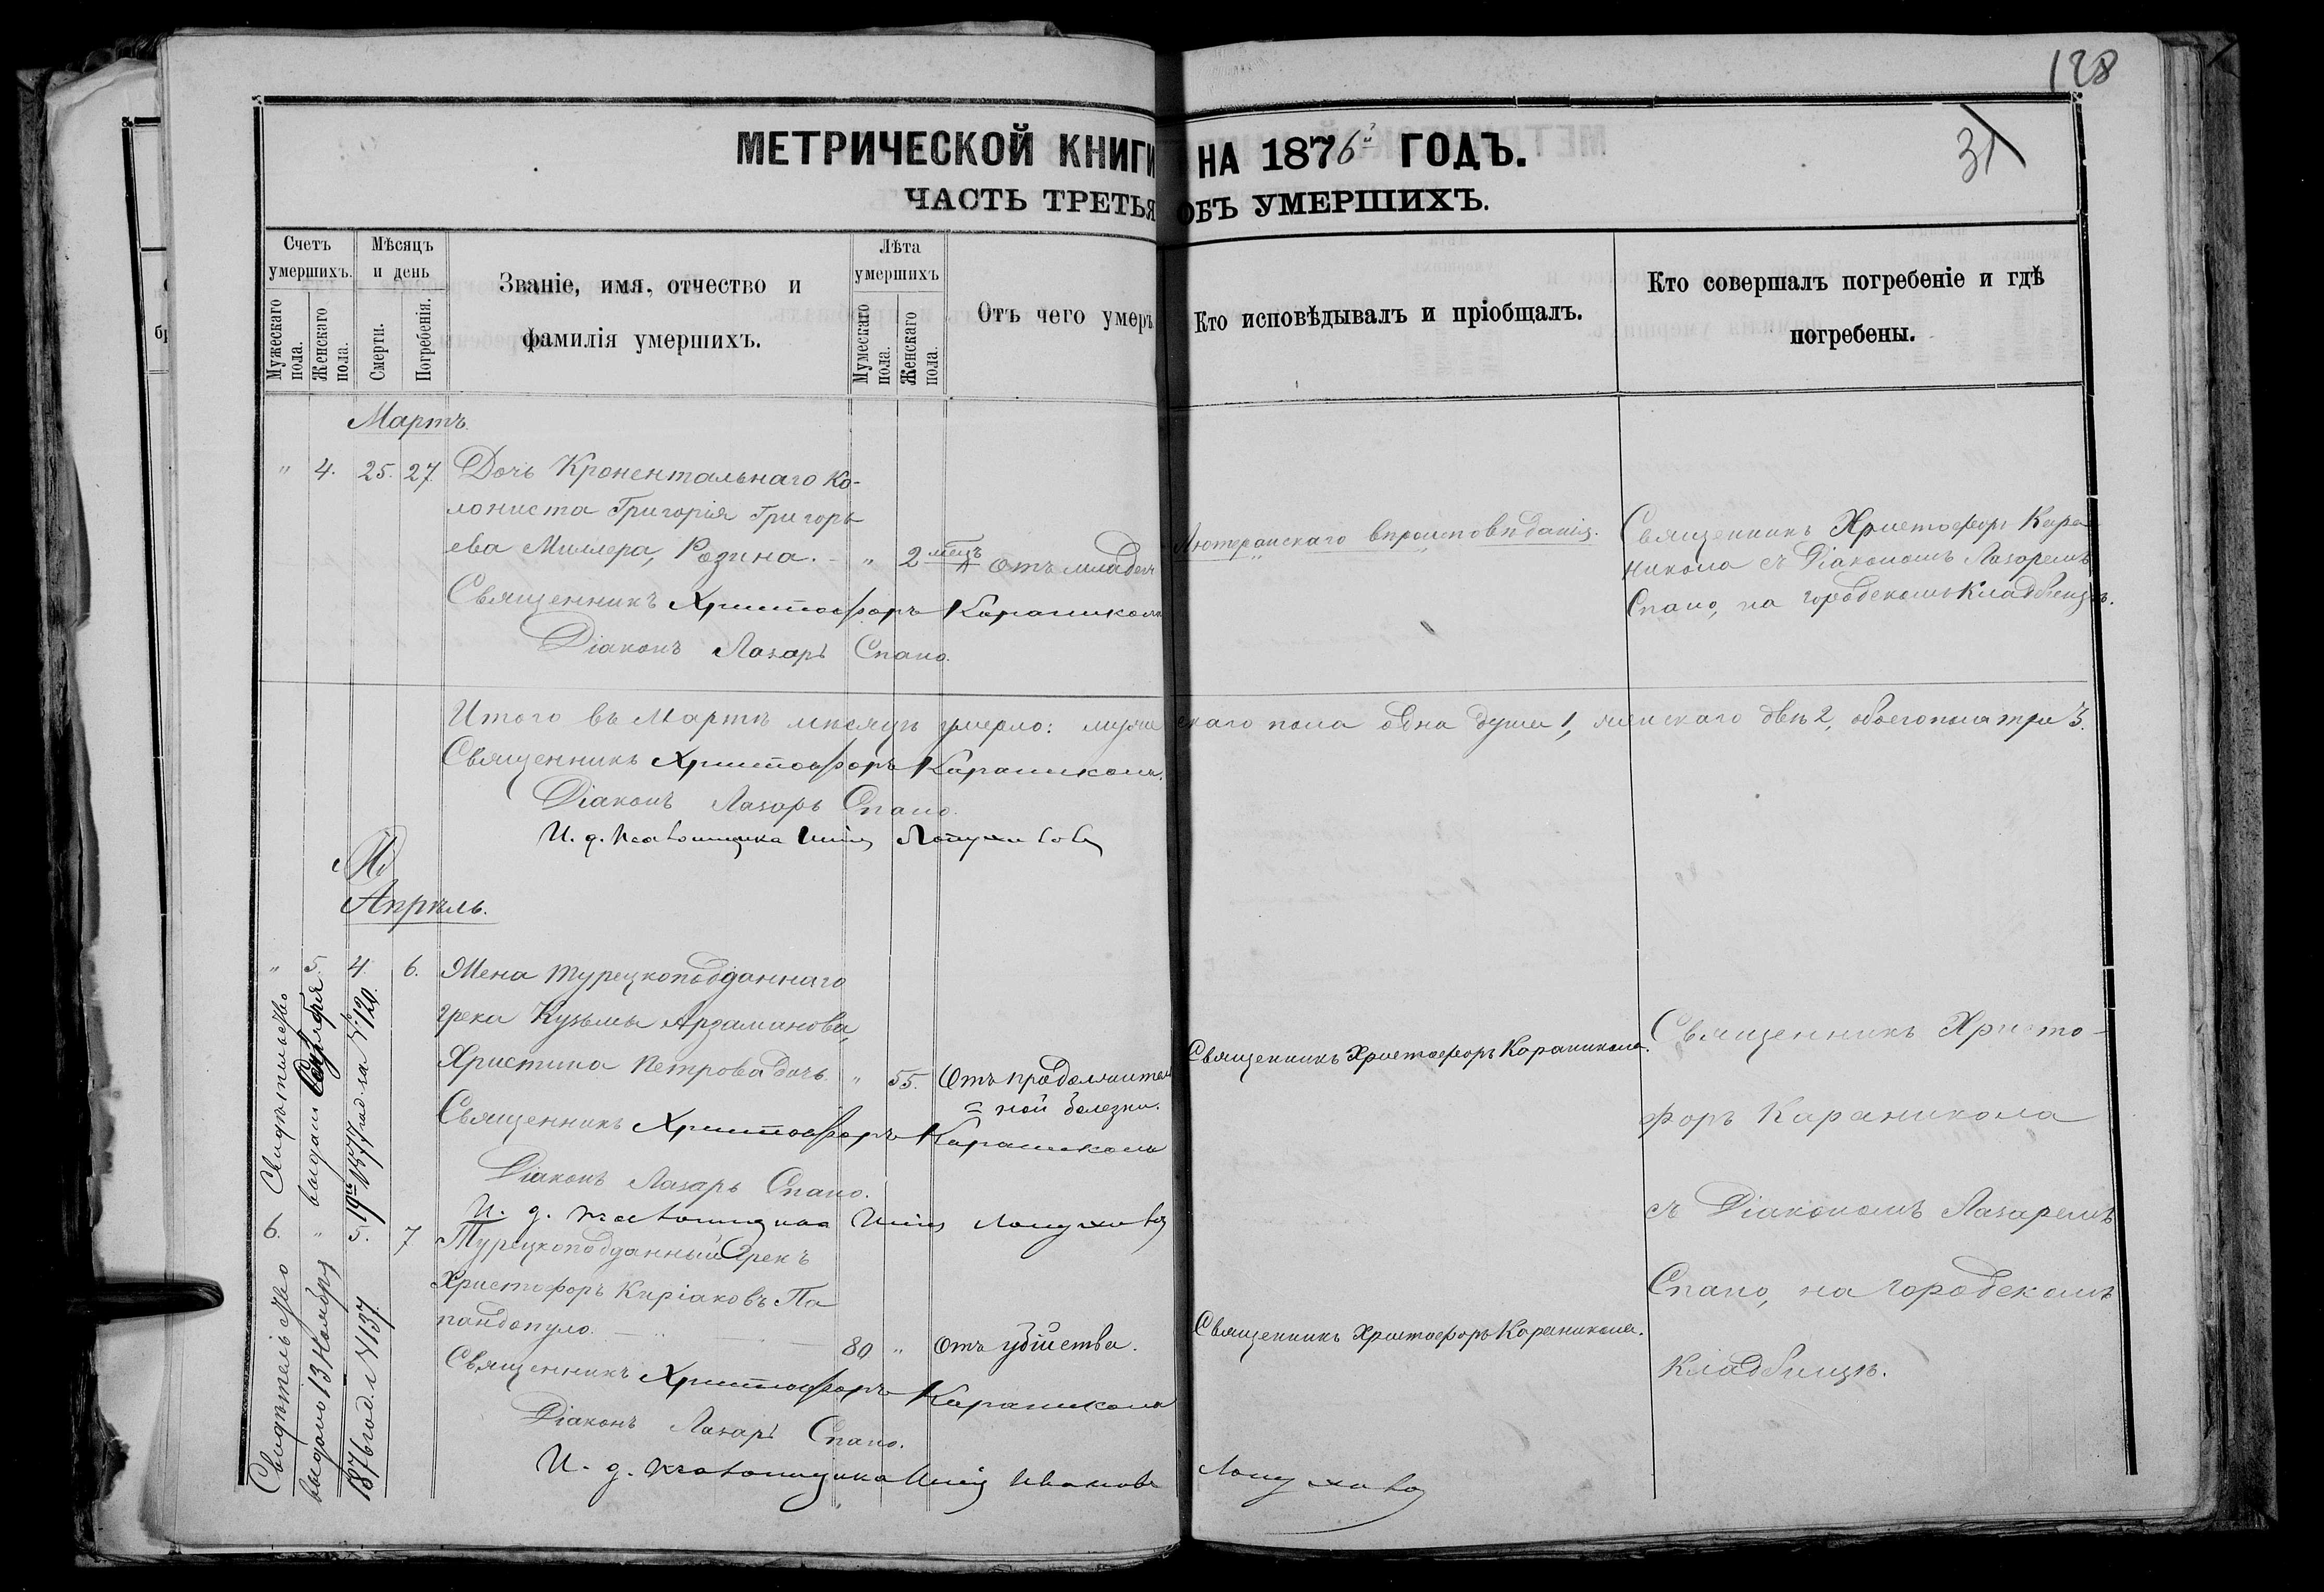 128
31
МЕТРИЧЕСКОЙ КНИГИ НА 1876й ГОДЪ.
ЧАСТЬ ТРЕТЬЯ ОБЪ УМЕРШИХЪ.
Счетъ умершихъ.
Мужескаго пола.
Женскаго пола.
Мѣсяцъ и день
Смерти.
Погребенія.
Званіе, имя, отчество и
фамилія умершихъ.
Лѣта умершихъ
Мумескаго пола.
Женскаго пола.
Отъ чего умеръ
Кто исповѣдывалъ и пріобщалъ.
Кто совершалъ погребеніе и гдѣ
погребены.
Мартъ.
" 4. 25. 27. Дочь Кронентальнаго Ко-
лониста Григорія Григорь
ева Миллера, Розина. — " 2 мѣц. Отъ младен
Лютеранскаго вѣроисповѣданія.
Священникъ Христофоръ Кара
никола съ Діакономъ Лазаремъ
Спано, на городскомъ Кладбищѣ.
Священникъ Христофоръ Караникола
Діаконъ Лазарь Спано.
Итого въ Мартѣ мѣсяцѣ умерло: мужескаго пола одна душа 1, женскаго двѣ 2, обоего пола три 3.
Священникъ Христофоръ Караникола.
Діаконъ Лазарь Спано.
И. д. Псаломщика
Апрѣль.
" 5. 4. 6. Жена турецкоподданнаго
грека Кузьмы Арзаманова,
Христина Петрова дочь. " 55. Отъ продолжител
= ной болезни.
Священникъ Христофоръ Караникола.
Священникъ Христо-
форъ Караникола
съ Діакономъ Лазаремъ
Спано, на Городскомъ
Кладбищѣ.
Священникъ Христофоръ Караникола
Діаконъ Лазарь Спано.
И. д. Псаломщика
6. " 5. 7 Турецкоподданный Грекъ
Христофоръ Киріаковъ Па
пандопуло. — " — 80 " Отъ убійства.
Священникъ Христофоръ Караникола.
Священникъ Христофоръ Караникола
Діаконъ Лазарь Спано.
И. д. Псаломщика
Свидѣтельство
выдано
19 1877 год. за № 120.
Свидѣтельство
выдано 13 Ноября
1876 год. № 137.